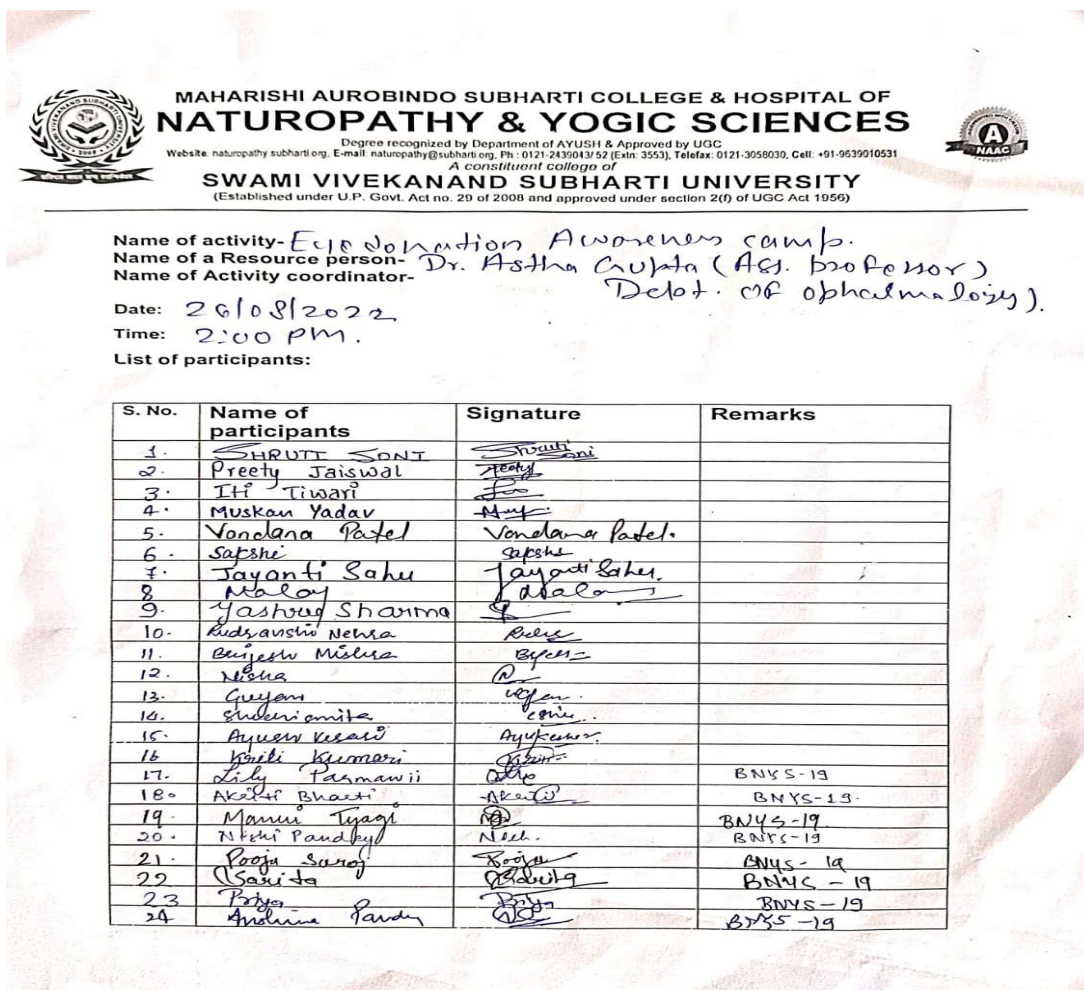 MAHARISHI AUROBINDO SUBHARTI COLLEGE & HOSPITAL OF
NATUROPATHY & YOGIC SCIENCES
Degree recognized by Department of AYUSH & Approved by UGC
Website. naturopathy subharti.org, E-mail: naturopathy@subharti.org, Ph : 0121-2439043/ 52 (Extn: 3553), Telefax: 0121-3058030, Cell: +91-9639010531
A constituent college of
SWAMI VIVEKANAND SUBHARTI UNIVERSITY
(Established under U.P. Govt. Act no. 29 of 2008 and approved under section 2(f) of UGC Act 1956)
A
NAAC
Name of activity- Eye Donation Awareness camp.
Name of a Resource person- Dr. Astha Gupta (Ass. professor)
Name of Activity coordinator- Dept. OF
Date: 26/08/2022
Time: 2:00 PM.
List of participants:
S. No. Name of participants Signature Remarks
1. SHRUTI SONI Shruti Soni
2. Preety Jaiswal Preety
3. Iti Tiwari
4. Muskan Yadav
5. Vandana Patel Vandana Patel.
6. Sakshi Sakshi
7. Jayanti Sahu Jayanti Sahu.
8 Malay Malay
9. Sharma
10. Nehra
11. Brijesh Mishra
12. Nisha
13.
14.
15. Ayush
16 Kriti Kumari
17. Lily BNYS-19
18. Bharti BNYS-19.
19. Tyagi BNYS-19.
20. Nishi Pandey BNYS-19
21. Pooja Saroj Pooja BNYS-19
22 Sarita Sarita BNYS-19
23 Priya Priya BNYS-19
24 Pandy BNYS-19